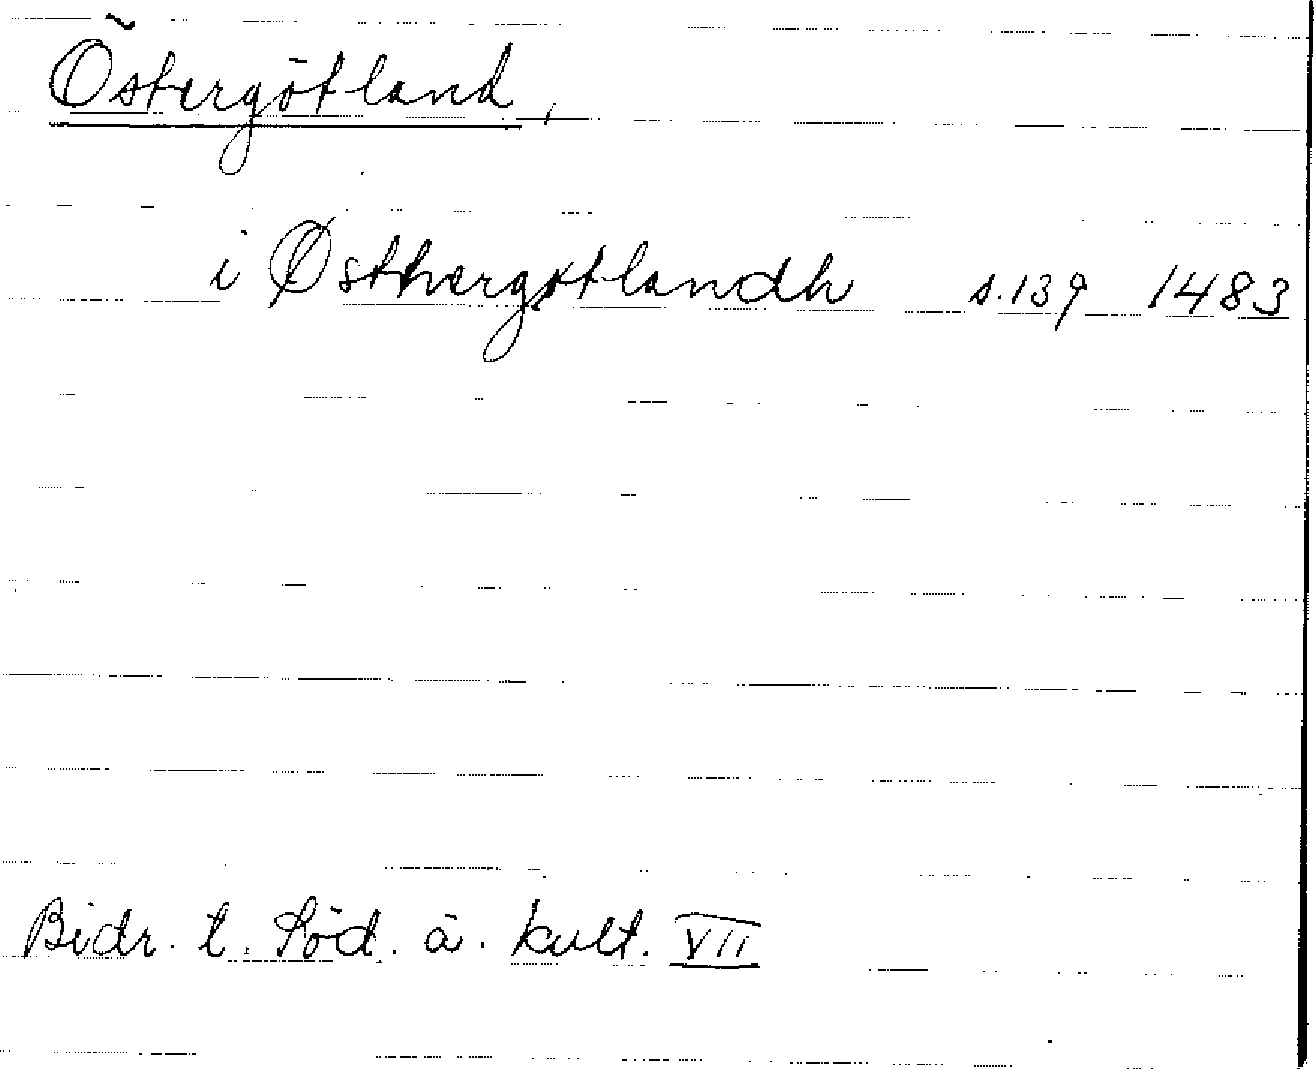 Östergötland,
i Østhergøtlandh s.139 1483
Bidr. t. Söd. ä. kult. VII